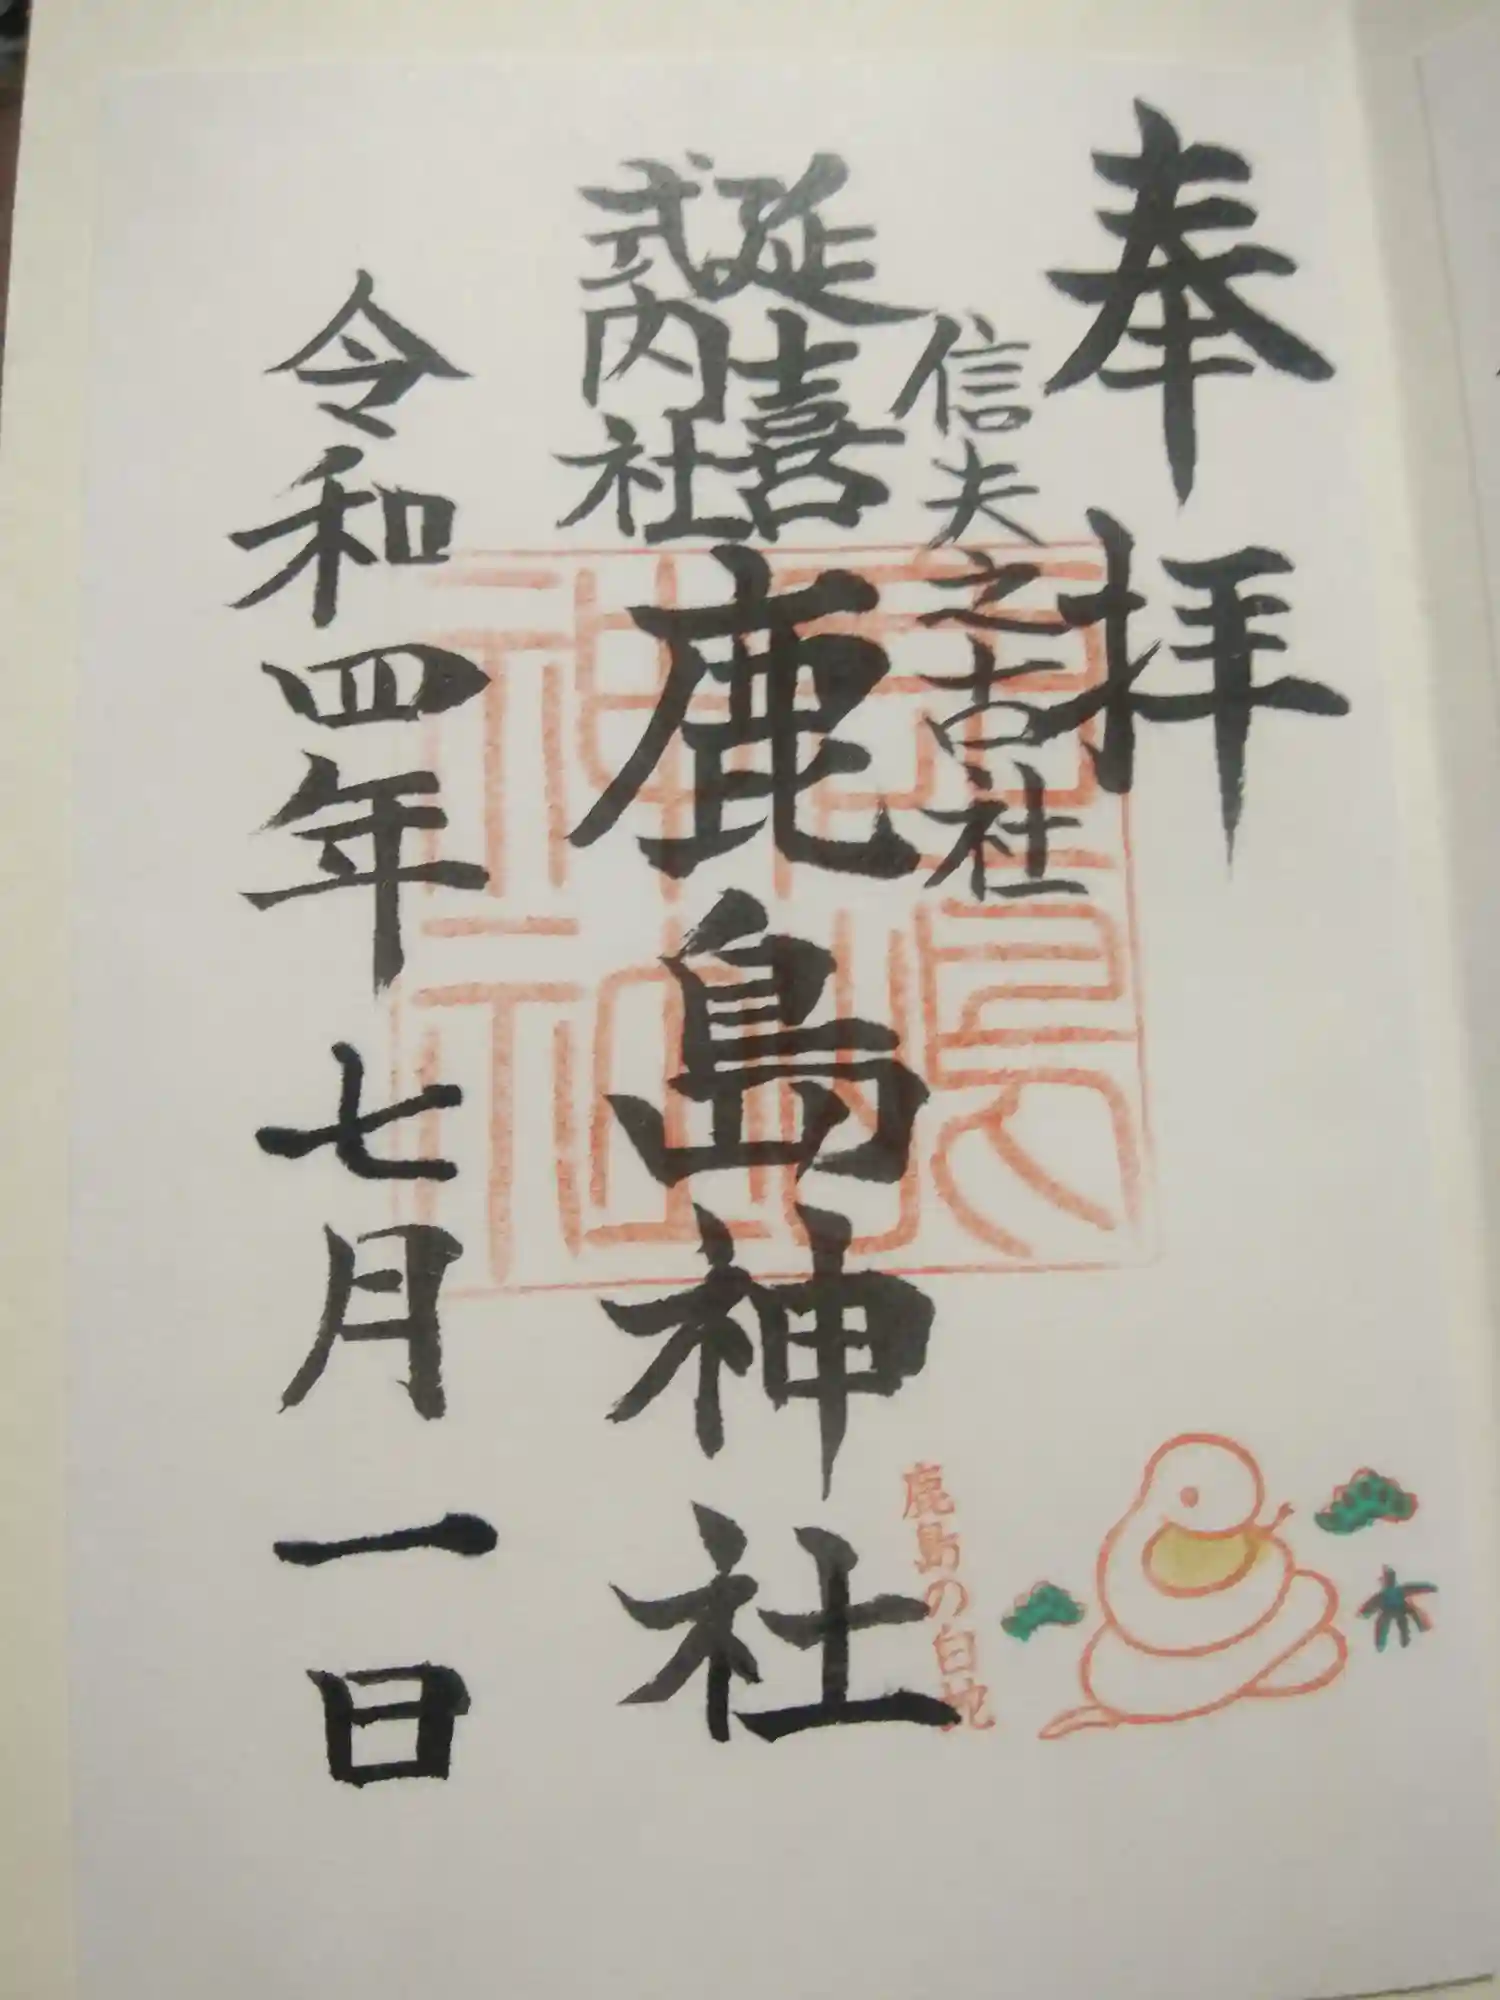 奉拝
信夫之古社
延喜
式内社
鹿島神社
令和四年七月一日
鹿島の白蛇